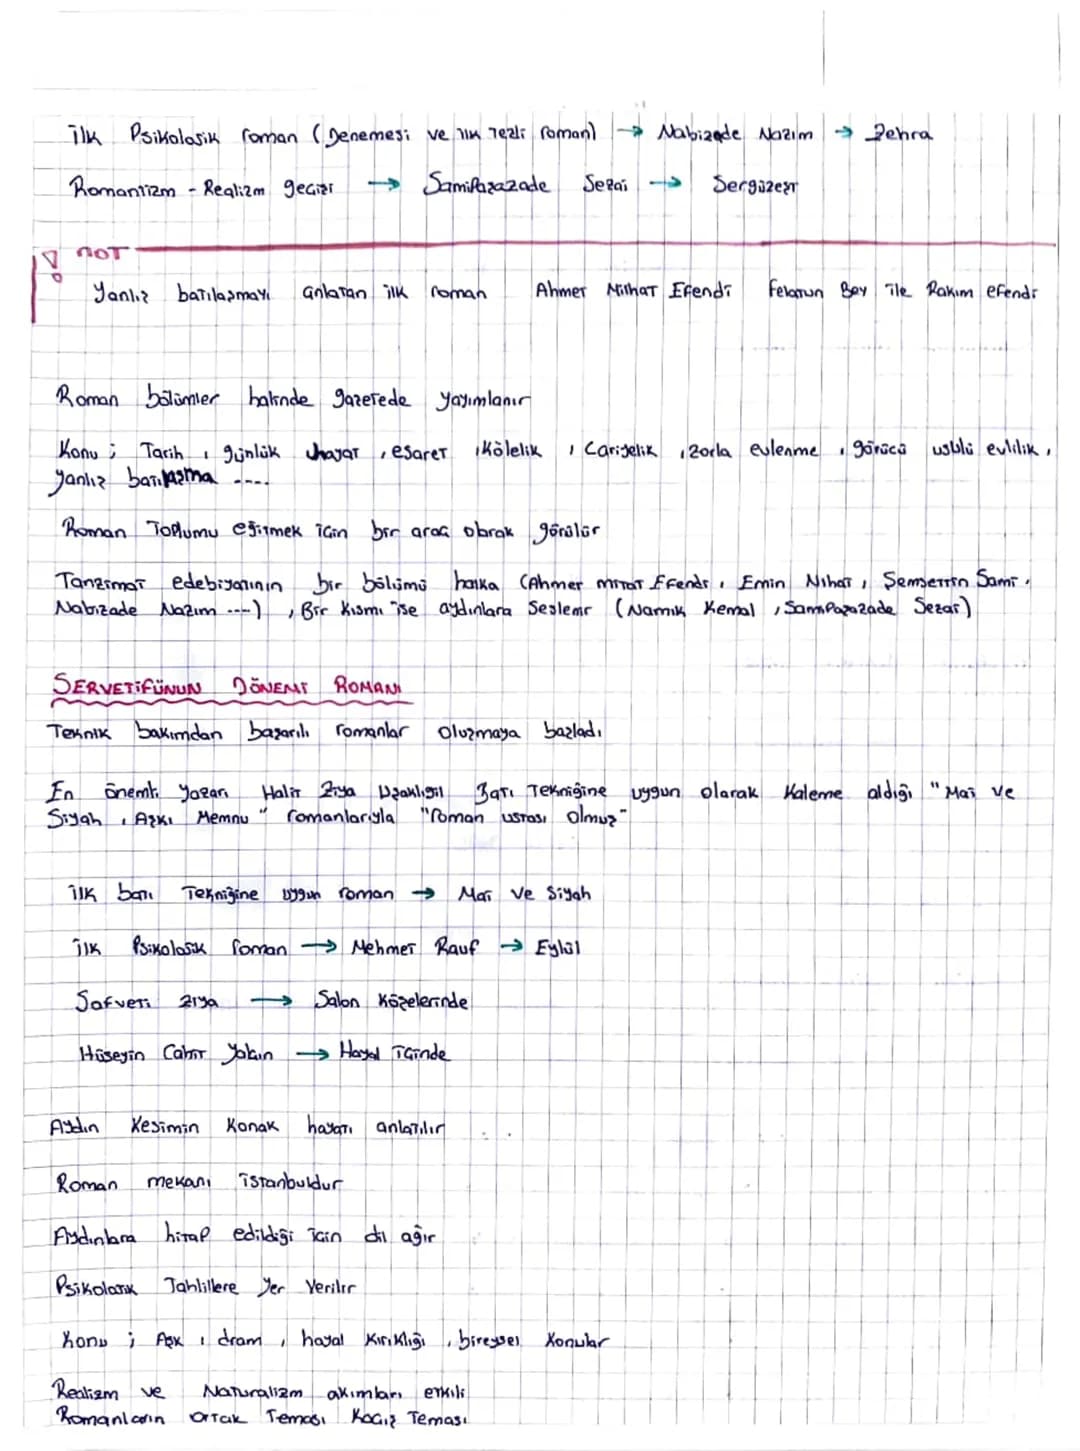 İlk Psikolojik roman (Denemesi ve ilk Tezli roman) → Nabizade Nazım → Zehra
Romantizm - Realizm geçişi → Samipaşazade Sezai → Sergüzeşt
! NOT
Yanlız batılaşmayı anlatan ilk roman Ahmet Mithat Efendi Felatun Bey ile Rakım efendi
Roman bölümler halinde gazetede yayımlanır
Konu ; Tarih , günlük hayat , esaret , Kölelik , Cariyelik , zorla evlenme , görücü usülü evlilik ,
yanlız batılaşma ....
Roman Toplumu eğitmek için bir araç olarak görülür
Tanzimat edebiyatının bir bölümü halka (Ahmet mitat Efendi , Emin Nihat , Şemsettin Sami ,
Nabizade Nazım ----) , Bir Kısmı ise aydınlara Seslenir (Namık Kemal , Samipaşazade Sezai)
SERVETİFÜNUN DÖNEMİ ROMANI
Teknik bakımdan başarılı romanlar oluşmaya başladı
En önemli yazarı Halit Ziya Uşaklıgil Batı Tekniğine uygun olarak Kaleme aldığı "Mai ve
Siyah , Aşkı Memnu" romanlarıyla "roman ustası olmuş"
ilk batı Tekniğine uygun roman → Mai ve Siyah
ilk Psikolojik roman → Mehmet Rauf → Eylül
Safveti ziya → Salon Köşelerinde
Hüseyin Cahit Yalçın → Hayal içinde
Aydın Kesimin Konak hayatı anlatılır
Roman mekanı İstanbuldur
Aydınlara hitap edildiği için dil ağır
Psikolojik Tahlillere Yer Verilir
Konu ; Aşk , dram , hayal Kırıklığı , bireysel Konular
Realizm ve Naturalizm akımları etkili
Romanların ortak Teması Kaçış Teması